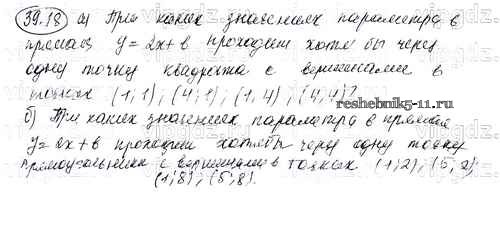 39.18 а) При каких значениях параметра b
прямая y=2x+b проходит хотя бы через
одну точку квадрата с вершинами в
точках (1;1); (4;1); (1;4); (4;4)?
reshebnik5-11.ru
б) При каких значениях параметра b прямая
y=2x+b проходит хотя бы через одну точку
прямоугольника с вершинами в точках (1;2); (5;2);
(1;8); (5;8).